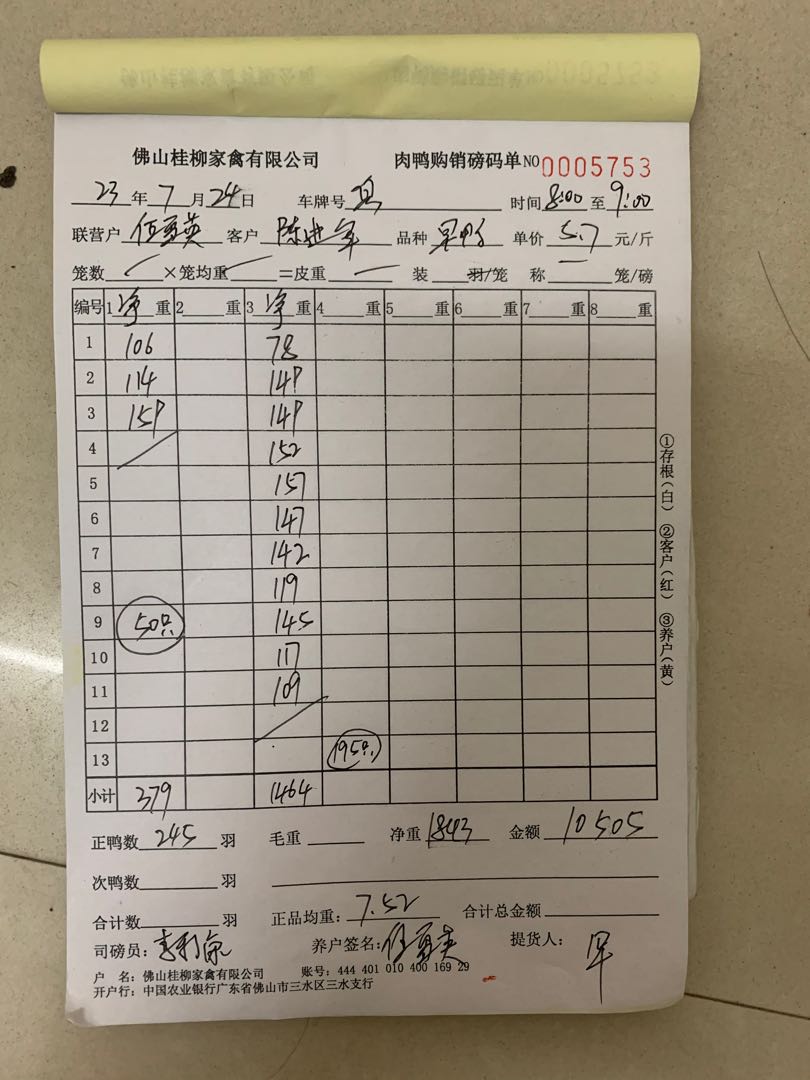 佛山桂柳家禽有限公司 肉鸭购销磅码单 NO 0005753
23 年 7 月 24 日 车牌号 时间 8:00 至 9:00
联营户 伍勇英 客户 陈进军 品种 单价 5.7 元/斤
笼数 ×笼均重 =皮重 — 装 羽/笼 称 — 笼/磅
编号 1 净 重 2 重 3 净 重 4 重 5 重 6 重 7 重 8 重
1 106 78
2 114 149
3 159 149
4 152
5 157
6 147
7 142
8 119
9 50只 145
10 117
11 109
12
13 195只
小计 379 1464
正鸭数 245 羽 毛重 净重 1843 金额 10505
次鸭数 羽
合计数 羽 正品均重: 7.52 合计总金额
司磅员: 养户签名: 伍勇英 提货人: 军
户 名: 佛山桂柳家禽有限公司 账号: 444 401 010 400 169 29
开户行: 中国农业银行广东省佛山市三水区三水支行
①存根(白) ②客户(红) ③养户(黄)